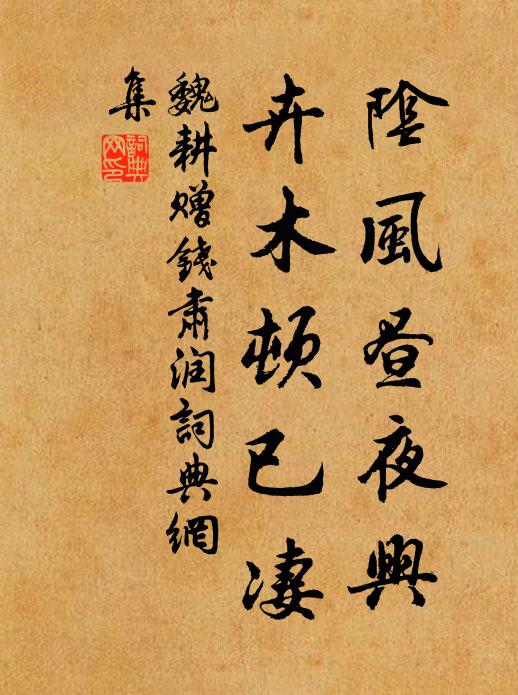 陰風昼夜興
卉木頓已凄
魏耕贈錢肅润詞典網
集
詞典
网印